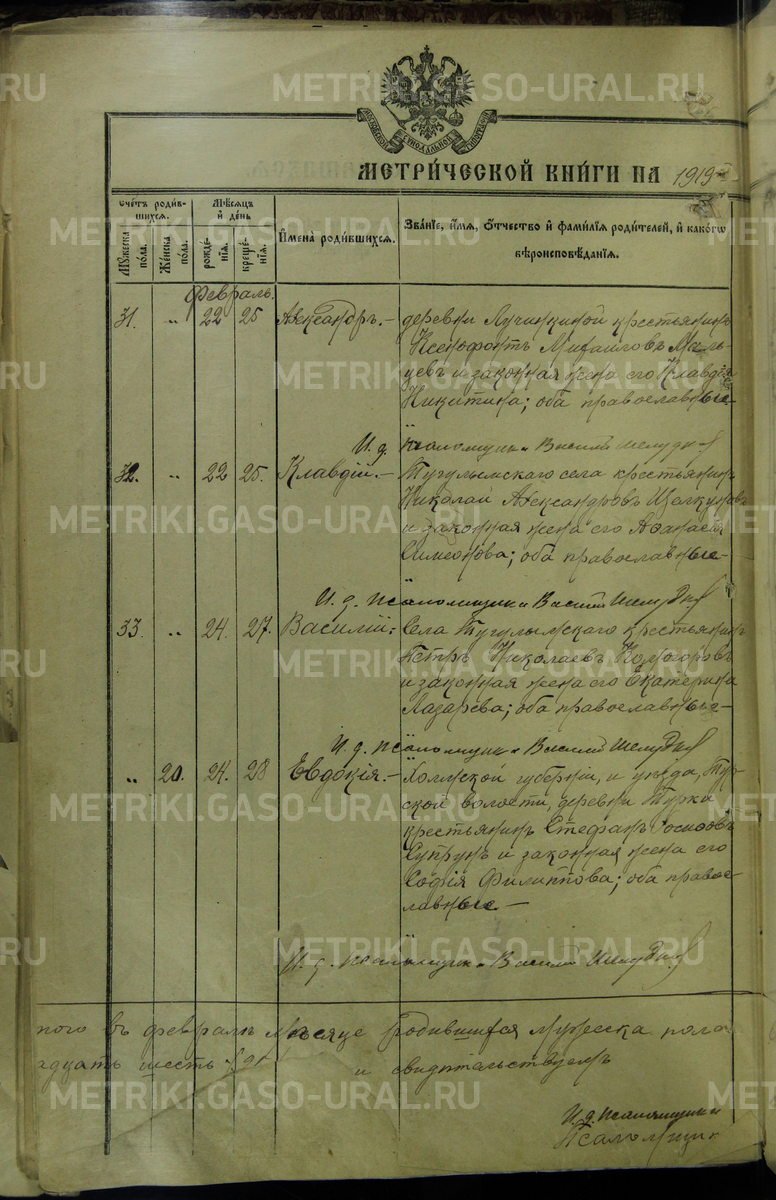 МЕТРИ́ЧЕСКОЙ КНИ́ГИ НА 1919
Сче́тъ роди́в-
шихся.
Мѣ́сяцъ
и҆ де́нь
Му́жеска
по́ла.
Же́нска
по́ла.
рожде́-
нїѧ.
креще́-
нїѧ.
И҆мена̀ роди́вшихся.
Зва́нїе, и҆́мѧ, ѻ҆́тчество и҆ фами́лїѧ роди́телей, и҆ како́гѡ
вѣроисповѣ́данїѧ.
Февраль.
31. „ 22 25 Александръ.— деревни Лучинкиной крестьянинъ
Ксенофонтъ Михаиловъ Маль-
цевъ и законная жена его Клавдія
Никитина; оба православные—
И. д. псаломщика Василій Шелудк
32. „ 22 25. Клавдій.— Тугулымскаго села крестьянинъ
Николай Александровъ Щелкуновъ
и законная жена его Афанасія
Симеонова; оба православные—
И. д. псаломщика Василій Шелудк
33. „ 24. 27. Василій: Села Тугулымскаго крестьянинъ
Петръ Николаевъ Коногоровъ
и законная жена его Екатерина
Лазарева; оба православные—
И. д. псаломщика Василій Шелудк
„ 20. 24. 28 Евдокія.— Холмской губерніи, и уезда, Тур-
ской волости, деревни Турки
крестьянинъ Стефанъ Осиповъ
Супрунъ и законная жена его
Софія Филиппова; оба право-
славные.—
И. д. псаломщика Василій Шелудк
ного въ февралѣ мѣсяце родившихся мужеска пола
адцать шесть и свидѣтельствуемъ
И. д. псаломщика
Псаломщик
METRIKI.GASO-URAL.RU